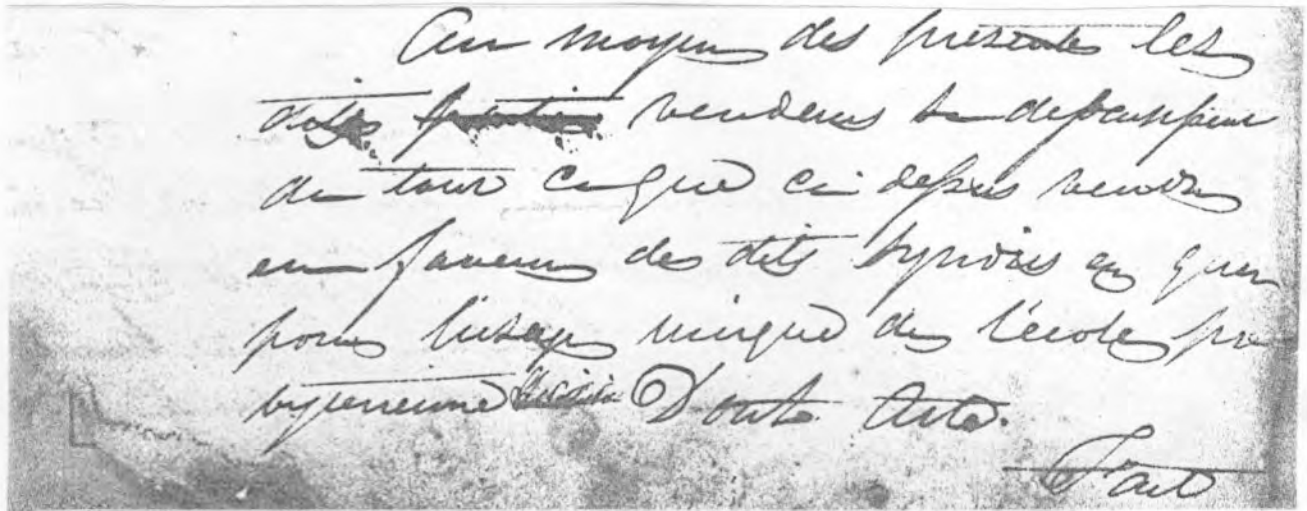 Au moyen des presentes les
dits vendeurs se depouillent
de tout ce que ci dessus vendu
en faveur des dits Syndics en
pour l'usage unique de l'école
Dont Acte.
Fait